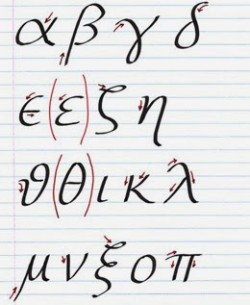 α β γ δ
ϵ (ε) ζ η
ϑ (θ) ι κ λ
μ ν ξ ο π